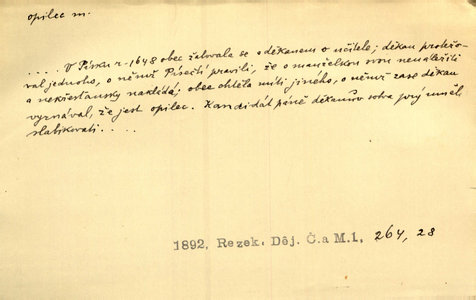 opilec m.
.... V Písku r. 1648 obec žalovala se s děkanem o učitele; děkan protežo-
val jednoho, o němž Písečtí pravili, že s manželkou svou neuáležitě
a nekřesťansky nakládá; obec chtěla míti jiného, o němž zase děkan
vyznával, že jest opilec. Kandidát páně děkanův sotva prý uměl
slabikovati....
1892, Rezek. Děj. Č. a M. I, 264, 28